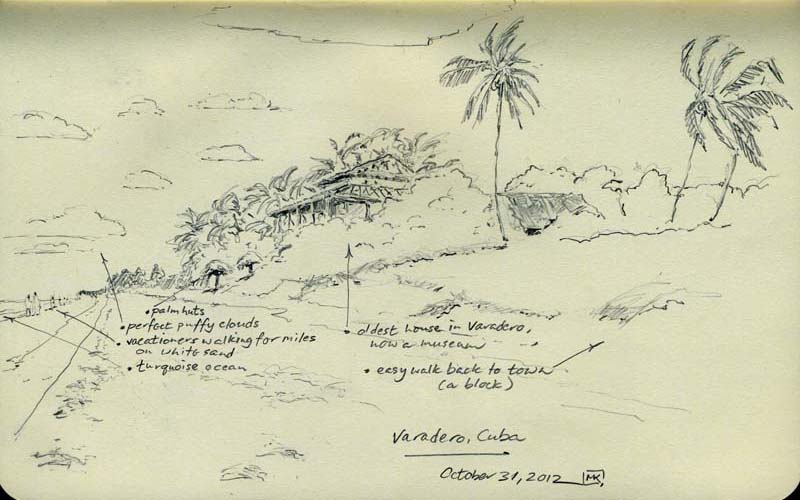 • palm huts
• perfect puffy clouds
• vacationers walking for miles
on white sand
• turquoise ocean
• oldest house in Varadero,
now a museum
• easy walk back to town
(a block)
Varadero, Cuba
October 31, 2012 MK